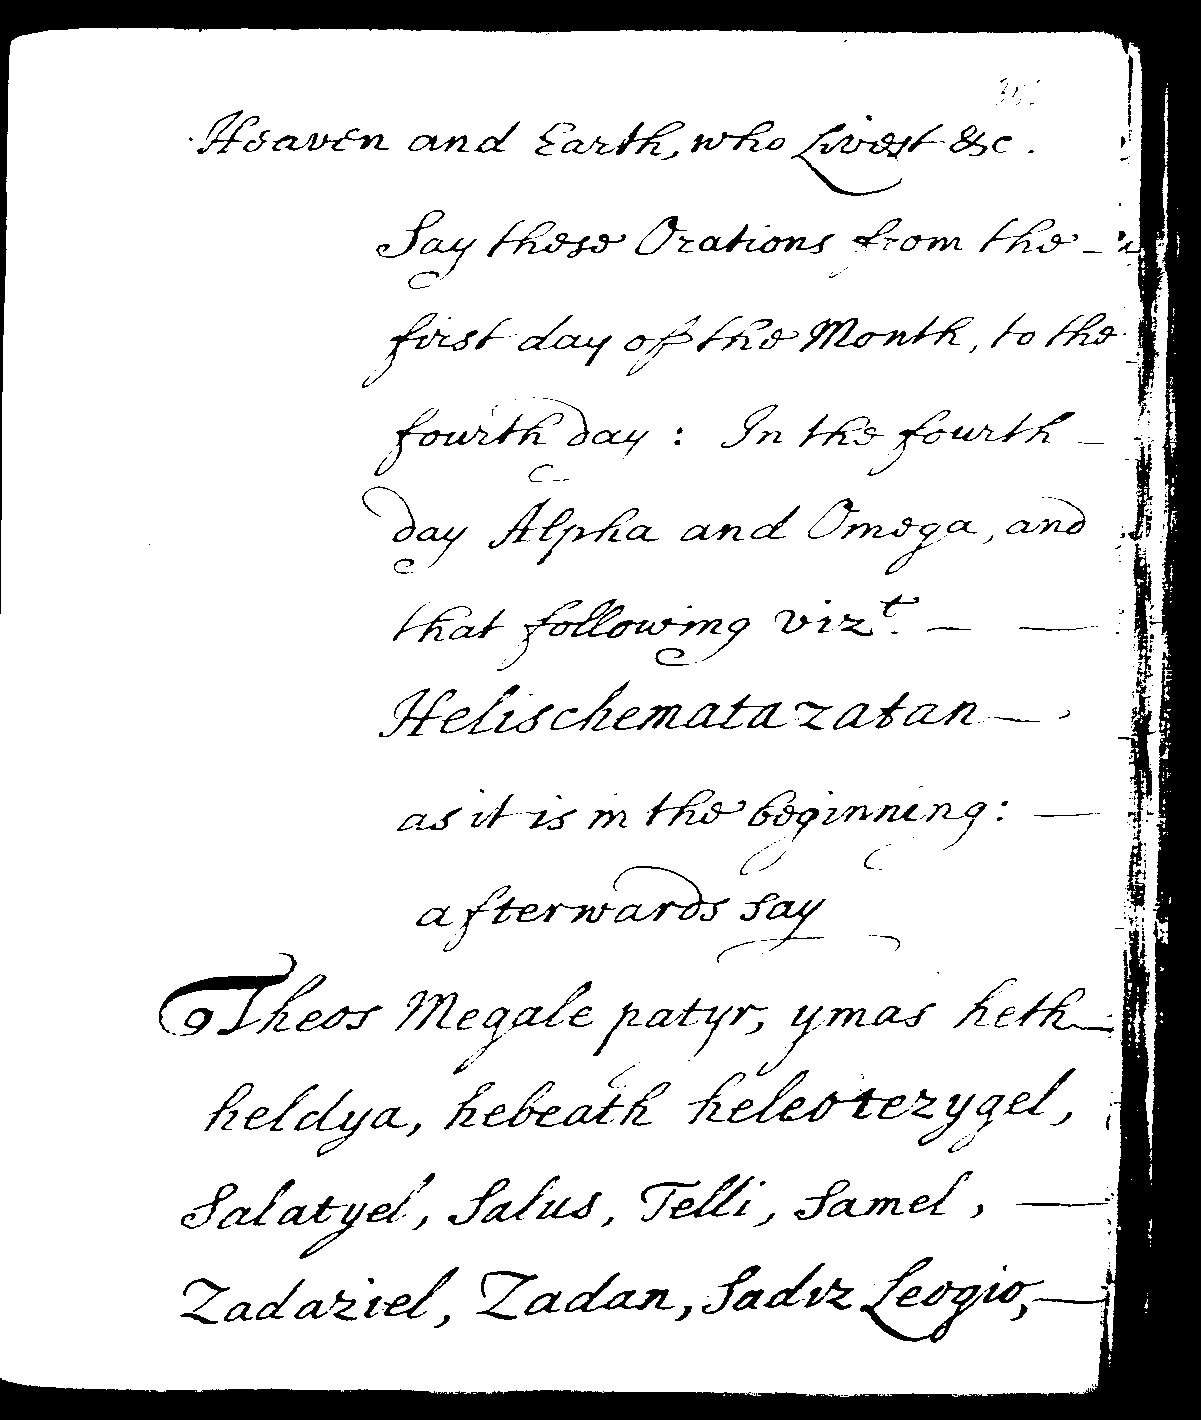 Heaven and Earth, who Livest &c.
Say these Orations from the –
first day of the Month, to the
fourth day : In the fourth –
day Alpha and Omega, and
that following vizt. — —
Helischemata zatan — ,
as it is in the beginning: —
afterwards say
Theos Megale patyr, ymas heth
heldya, hebeath heleotezygel,
Salatyel, Salus, Telli, Samel, —
Zadaziel, Zadan, Sadiz Leogio, —